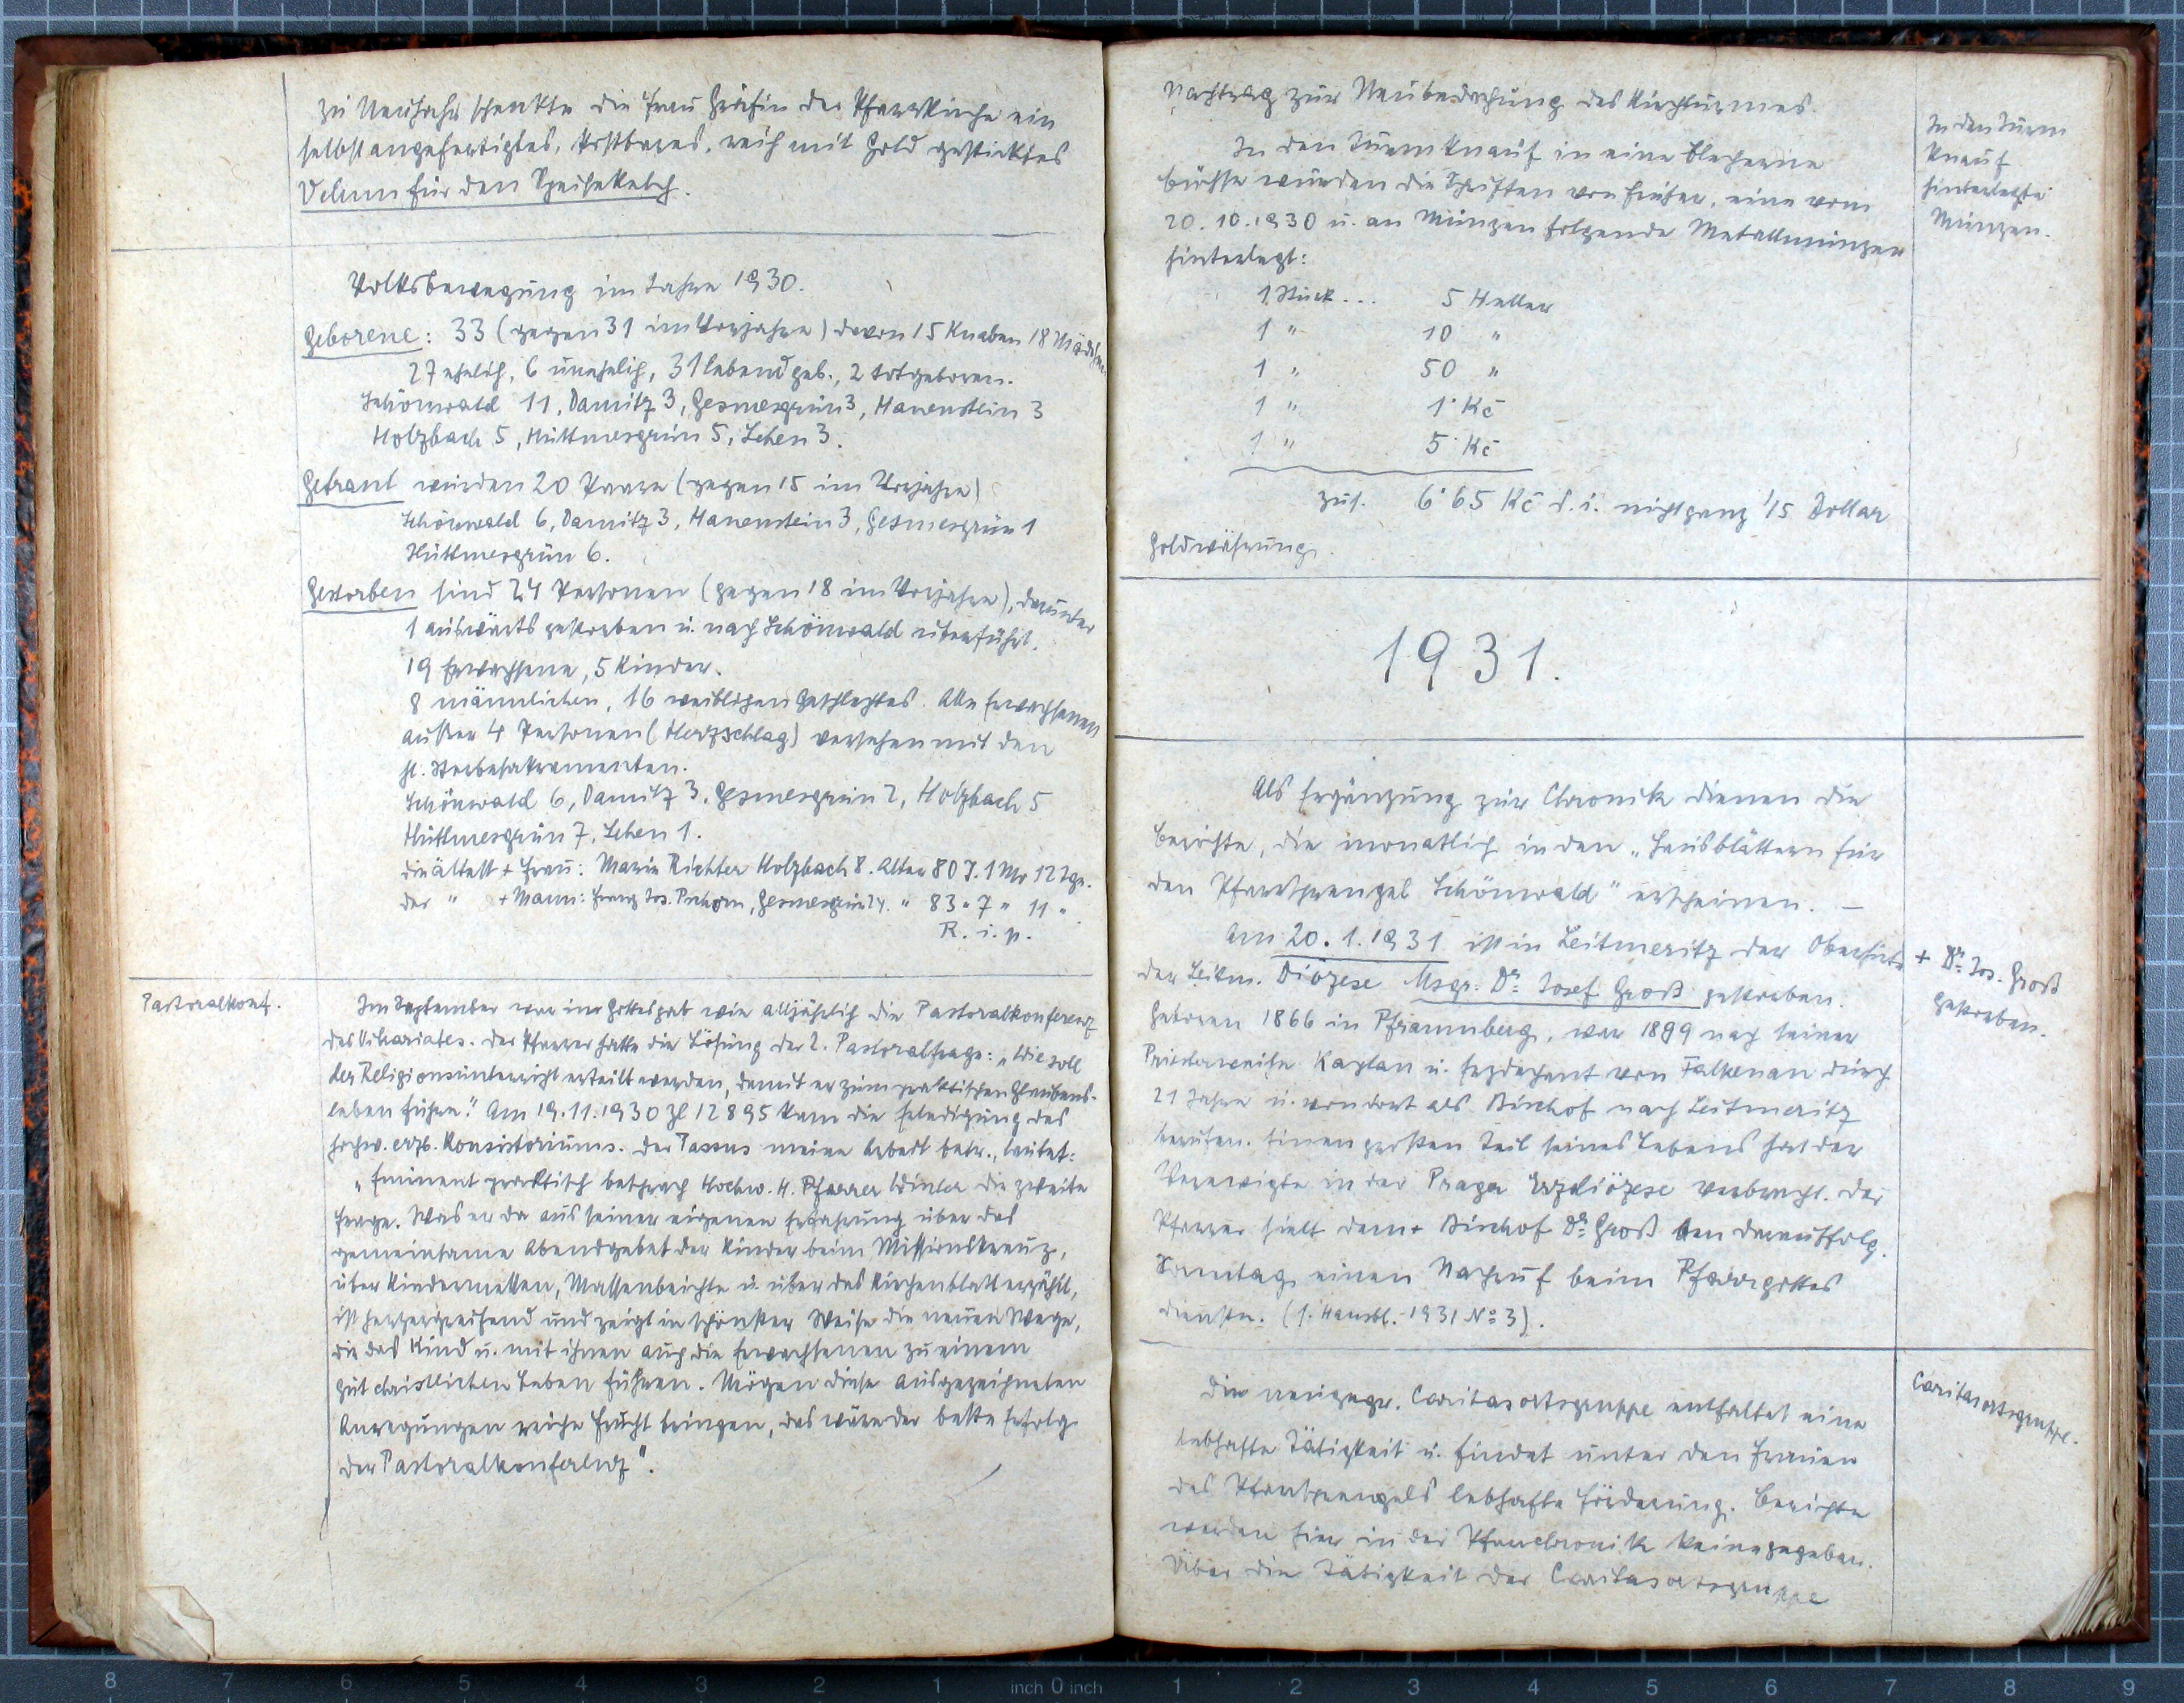 Zu Neujahr schenkte die Frau Gräfin der Pfarrkirche ein
selbstangefertigtes, kostbares, reich mit Gold gesticktes
Velum für den Speisekelch.
Volksbewegung im Jahre 1930.
Geborene: 33 (gegen 31 im Vorjahre) davon 15 Knaben 18 Mädchen
27 ehelich, 6 unehelich, 31 lebend geb., 2 totgeboren.
Schönwald 11, Damitz 3, Gesmesgrün 3, Hauenstein 3
Holzbach 5, Hüttmesgrün 5, Lehen 3.
Getraut wurden 20 Paare (gegen 15 im Vorjahre)
Schönwald 6, Damitz 3, Hauenstein 3, Gesmesgrün 1
Hüttmesgrün 6.
Gestorben sind 24 Personen (gegen 18 im Vorjahre), darunter
1 auswärts gestorben u. nach Schönwald überführt.
19 Erwachsene, 5 Kinder.
8 männlichen, 16 weiblichen Geschlechtes. Alle Erwachsenen
außer 4 Personen (Herzschlag) versehen mit den
hl. Sterbesakramenten.
Schönwald 6, Damitz 3, Gesmesgrün 2, Holzbach 5
Hüttmesgrün 7, Lehen 1.
die älteste + Frau: Maria Richter Holzbach 8. Alter 80 J. 1 Mo 12 Tge.
der " + Mann: Franz Jos. Pschorn, Gesmesgrün 24. " 83 " 7 " 11 "
R. i. p.
Pastoralkonf.
Im September war in Gottesgab wie alljährlich die Pastoralkonferenz
des Vikariates. Der Pfarrer hatte die Lösung der 2. Pastoralfrage: „Wie soll
der Religionsunterricht erteilt werden, damit er zum praktischen Glaubens-
leben führe." Am 19.11.1930 Zl 12895 kam die Erledigung des
hochw. erzb. Konsistoriums. Der Passus meine Arbeit betr., lautet:
„Eminent praktisch besprach Hochw. H. Pfarrer Winter die zweite
Frage. Was er da aus seiner eigenen Erfahrung über das
gemeinsame Abendgebet der Kinder beim Missionskreuz,
über Kindermetten, Massenbeichte u. über das Kirchenblatt erzählt,
ist herzergreifend und zeigt in schönster Weise die neuen Wege,
die das Kind u. mit ihnen auch die Erwachsenen zu einem
gut christlichen Leben führen. Mögen diese ausgezeichneten
Anregungen reiche Frucht bringen, das wäre der beste Erfolg
der Pastoralkonferenz".
Nachtrag zur Neubedachung des Kirchturmes.
In den Turmknauf in eine blecherne
Büchse wurden die Schriften von früher, eine vom
20.10.1930 u. an Münzen folgende Metallmünzen
hinterlegt:
In den Turm
knauf
hinterlegte
Münzen.
1 Stück... 5 Heller
1 " 10 "
1 " 50 "
1 " 1· Kč
1 " 5· Kč
zus. 6·65 Kč d. i. nicht ganz 1/5 Dollar
Goldwährung.
1931.
Als Ergänzung zur Chronik dienen die
Berichte, die monatlich in den „Hausblättern für
den Pfarrsprengel Schönwald" erscheinen. —
Am 20.1.1931 ist in Leitmeritz der Oberhirte
der Leitm. Diözese Msgr. Dr. Josef Groß gestorben.
+ Dr. Jos. Groß
gestorben.
Geboren 1866 in , war 1899 nach seiner
Priesterweihe Kaplan u. Erzdechant von Falkenau durch
21 Jahre u. von dort als Bischof nach Leitmeritz
berufen. Einen großen Teil seines Lebens hat der
Verewigte in der Prager Erzdiözese verbracht. Der
Pfarrer hielt dem + Bischof Dr. Groß den darauffolg.
Sonntag einen Nachruf beim Pfarrgottes
dienste. (s. Hausbl. 1931 No 3).
Die neugegr. Caritasortsgruppe entfaltet eine
lebhafte Tätigkeit u. findet unter den Frauen
des Pfarrsprengels lebhafte Förderung. Berichte
werden hier in der Pfarrchronik keine gegeben.
Über die Tätigkeit der Caritasortsgruppe
Caritasortsgruppe.